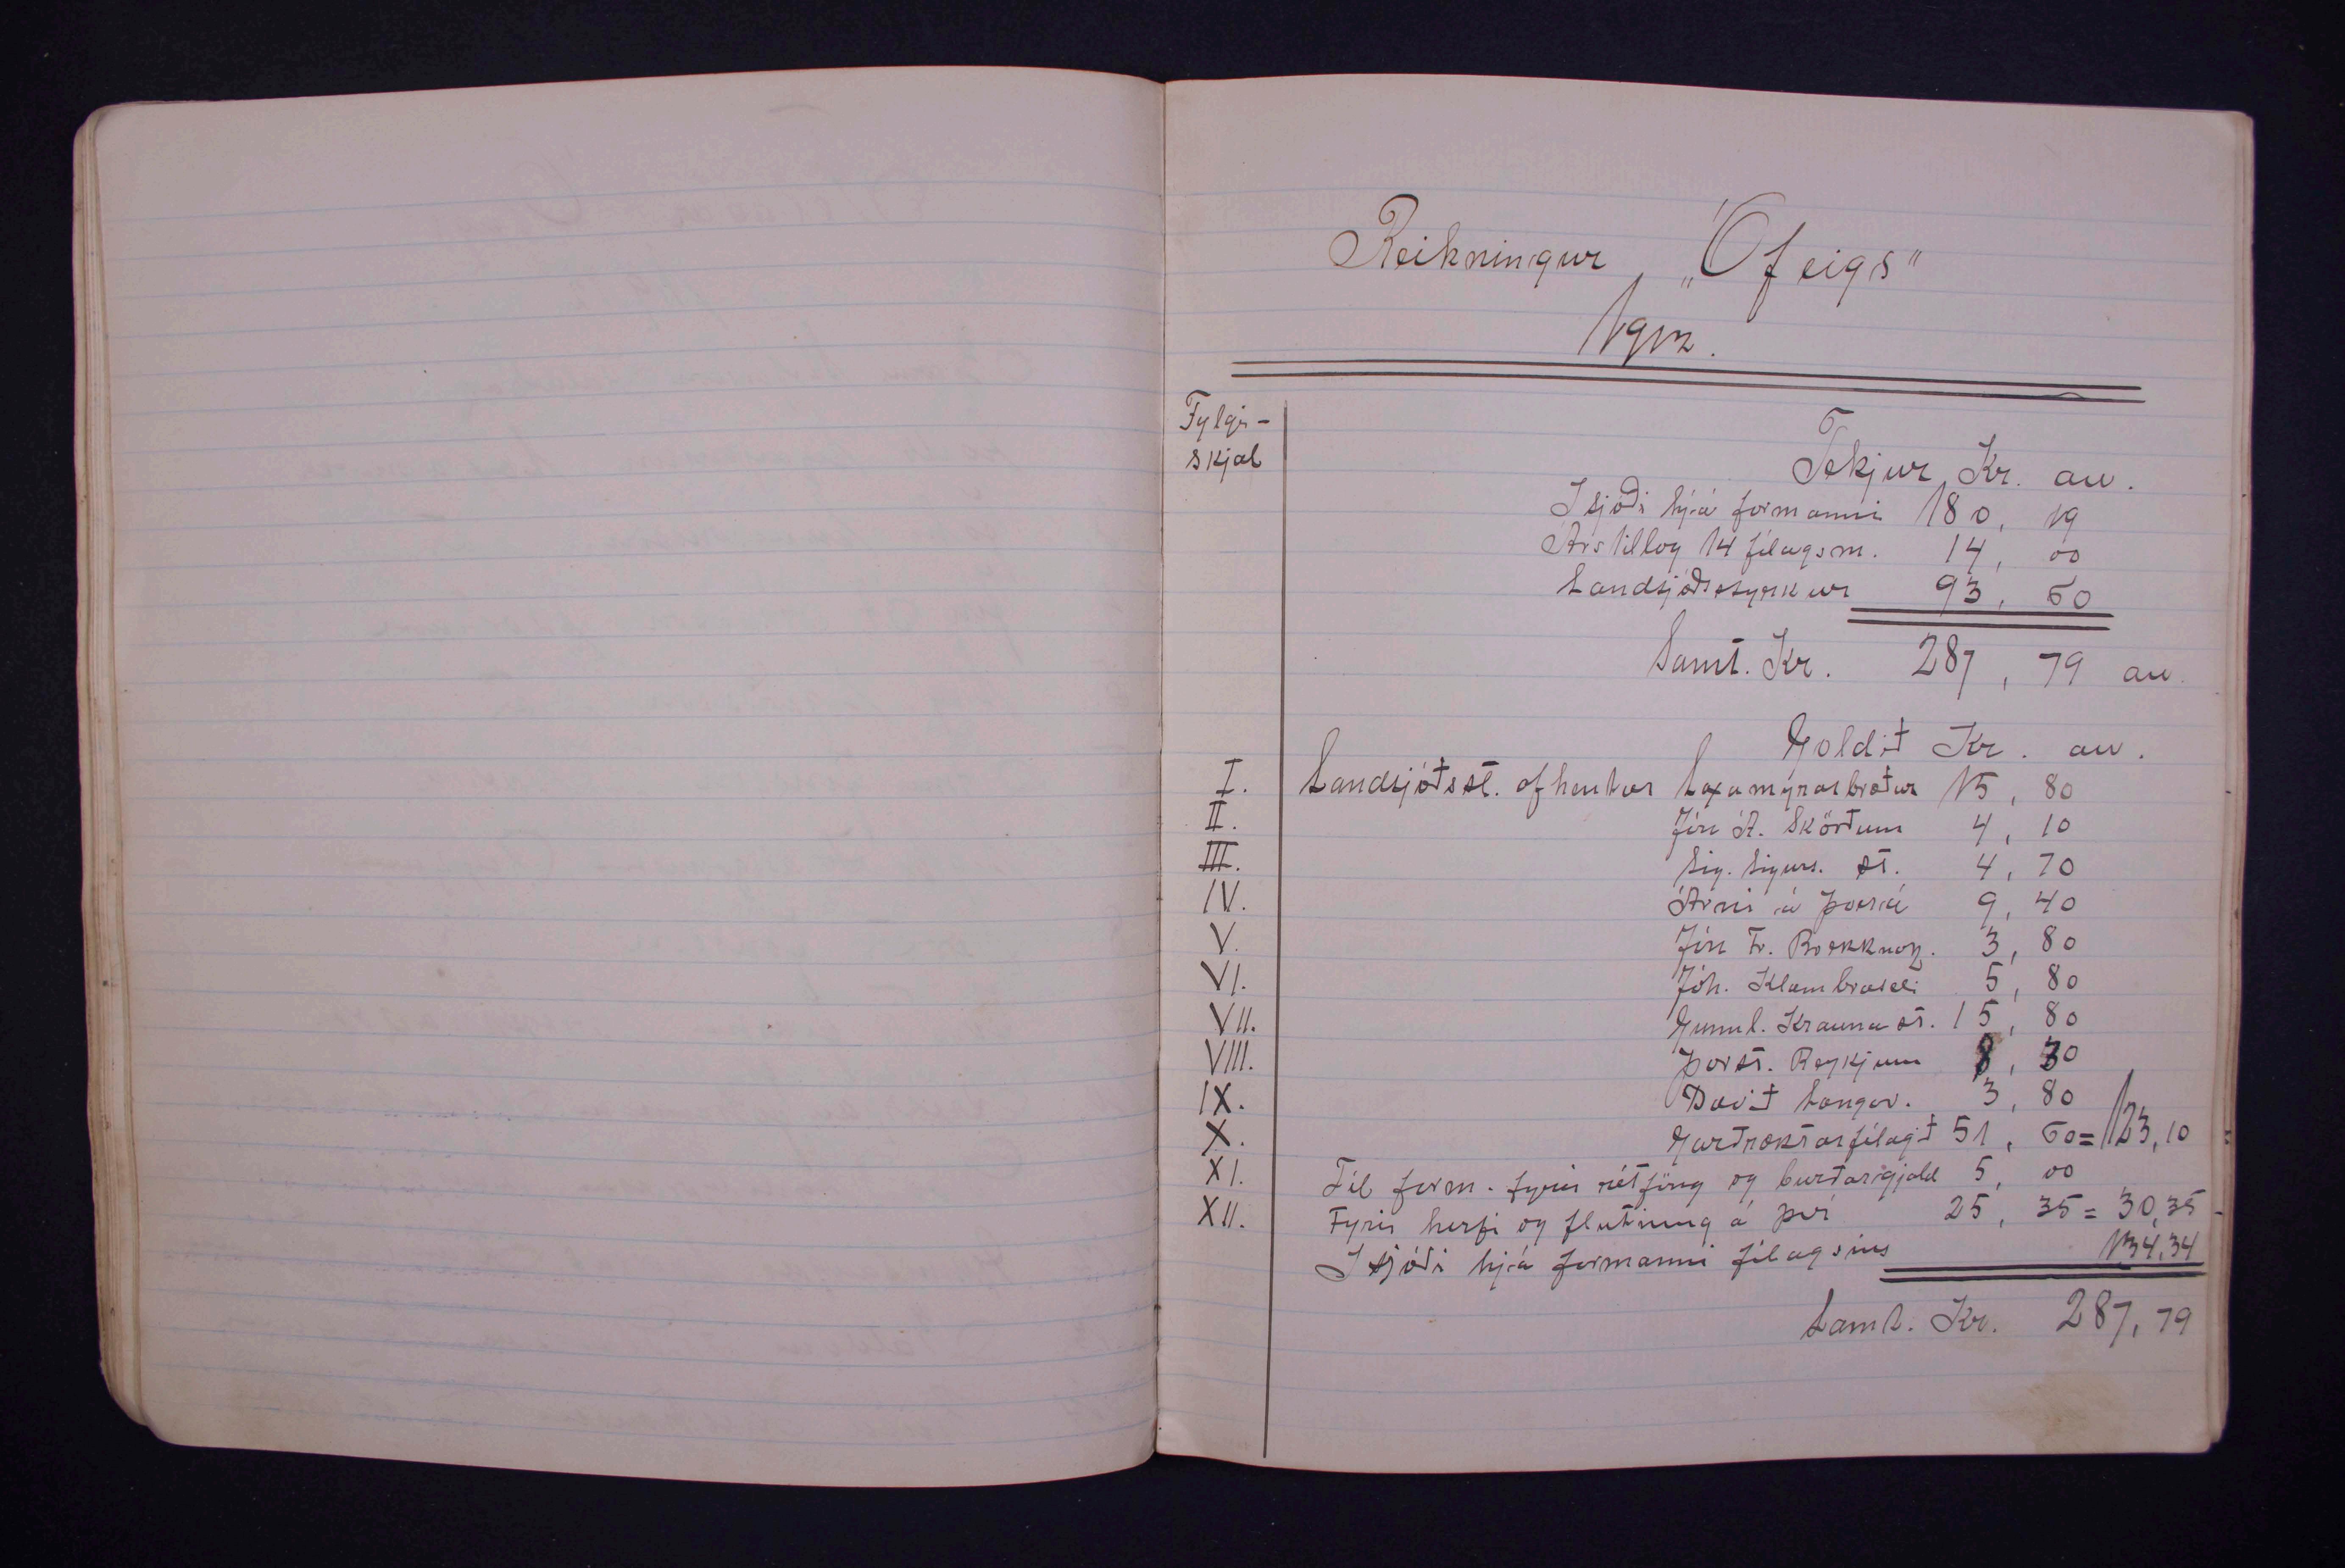 Reikningur „Ófeigs"
1912.
Fylgi-
skjal
Tekjur Kr. au.
Í sjóði hjá formanni 180, 19
Árstillög 14 félagsm. 14, 00
Landsjóðsstyrkur 93, 60
Samt. Kr. 287, 79 au.
Goldið Kr. au.
I. Landsjóðsst. afhentur Laxamýrarbræður 15, 80
II. Jón Á. Skörðum 4, 10
III. Sig. Sigurs. st. 4, 70
IV. Árni á Þverá 9, 40
V. Jón Fr. Brekknak. 3, 80
VI. Jóh. Klambraseli 5, 80
VII. Gunnl. Kraunast. 15, 80
VIII. Þorst. Reykjum 8, 30
IX. Davið Langav. 3, 80
X. Garðræktarfélagið 51, 60 = 123,10
XI. Til form. fyrir ritföng og burðargjald 5, 00
XII. Fyrir herfi og flutning á því 25, 35 = 30,35
Í sjóði hjá formanni félagsins 134,34
Samt. Kr. 287,79